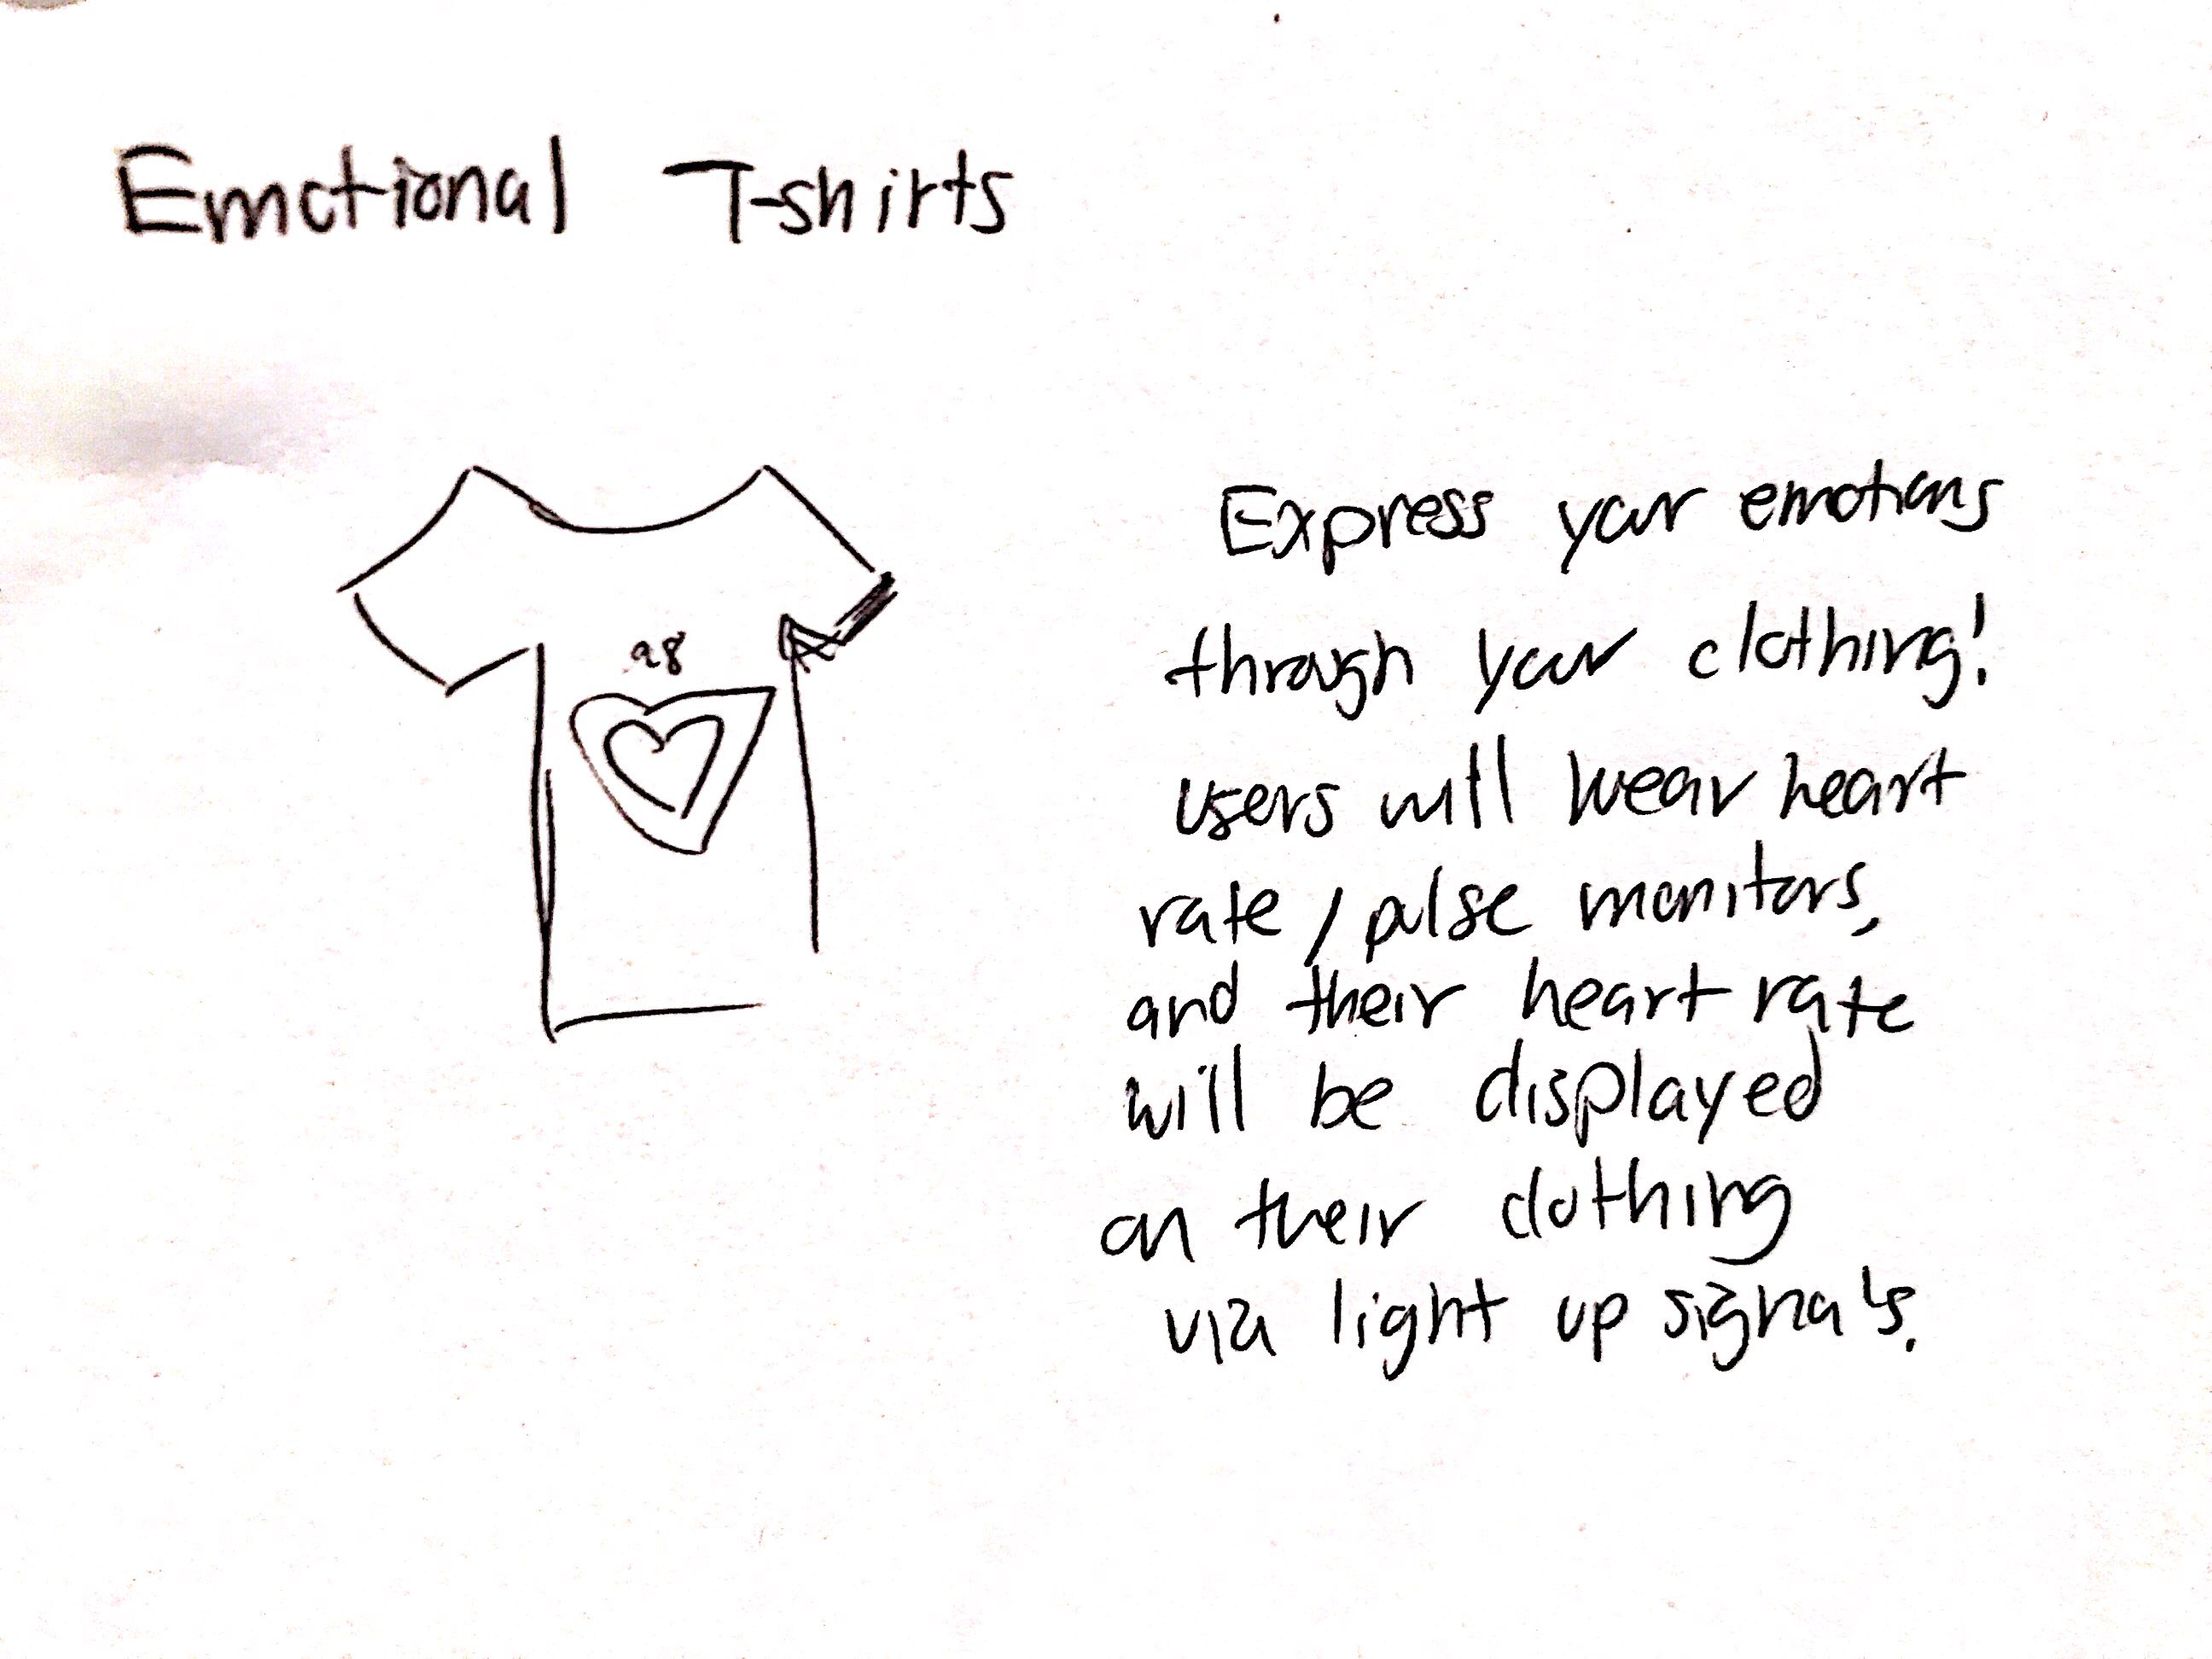 Emotional T-shirts
98
Express your emotions
through your clothing!
users will wear heart
rate / pulse monitors,
and their heart rate
will be displayed
on their clothing
via light up signals.